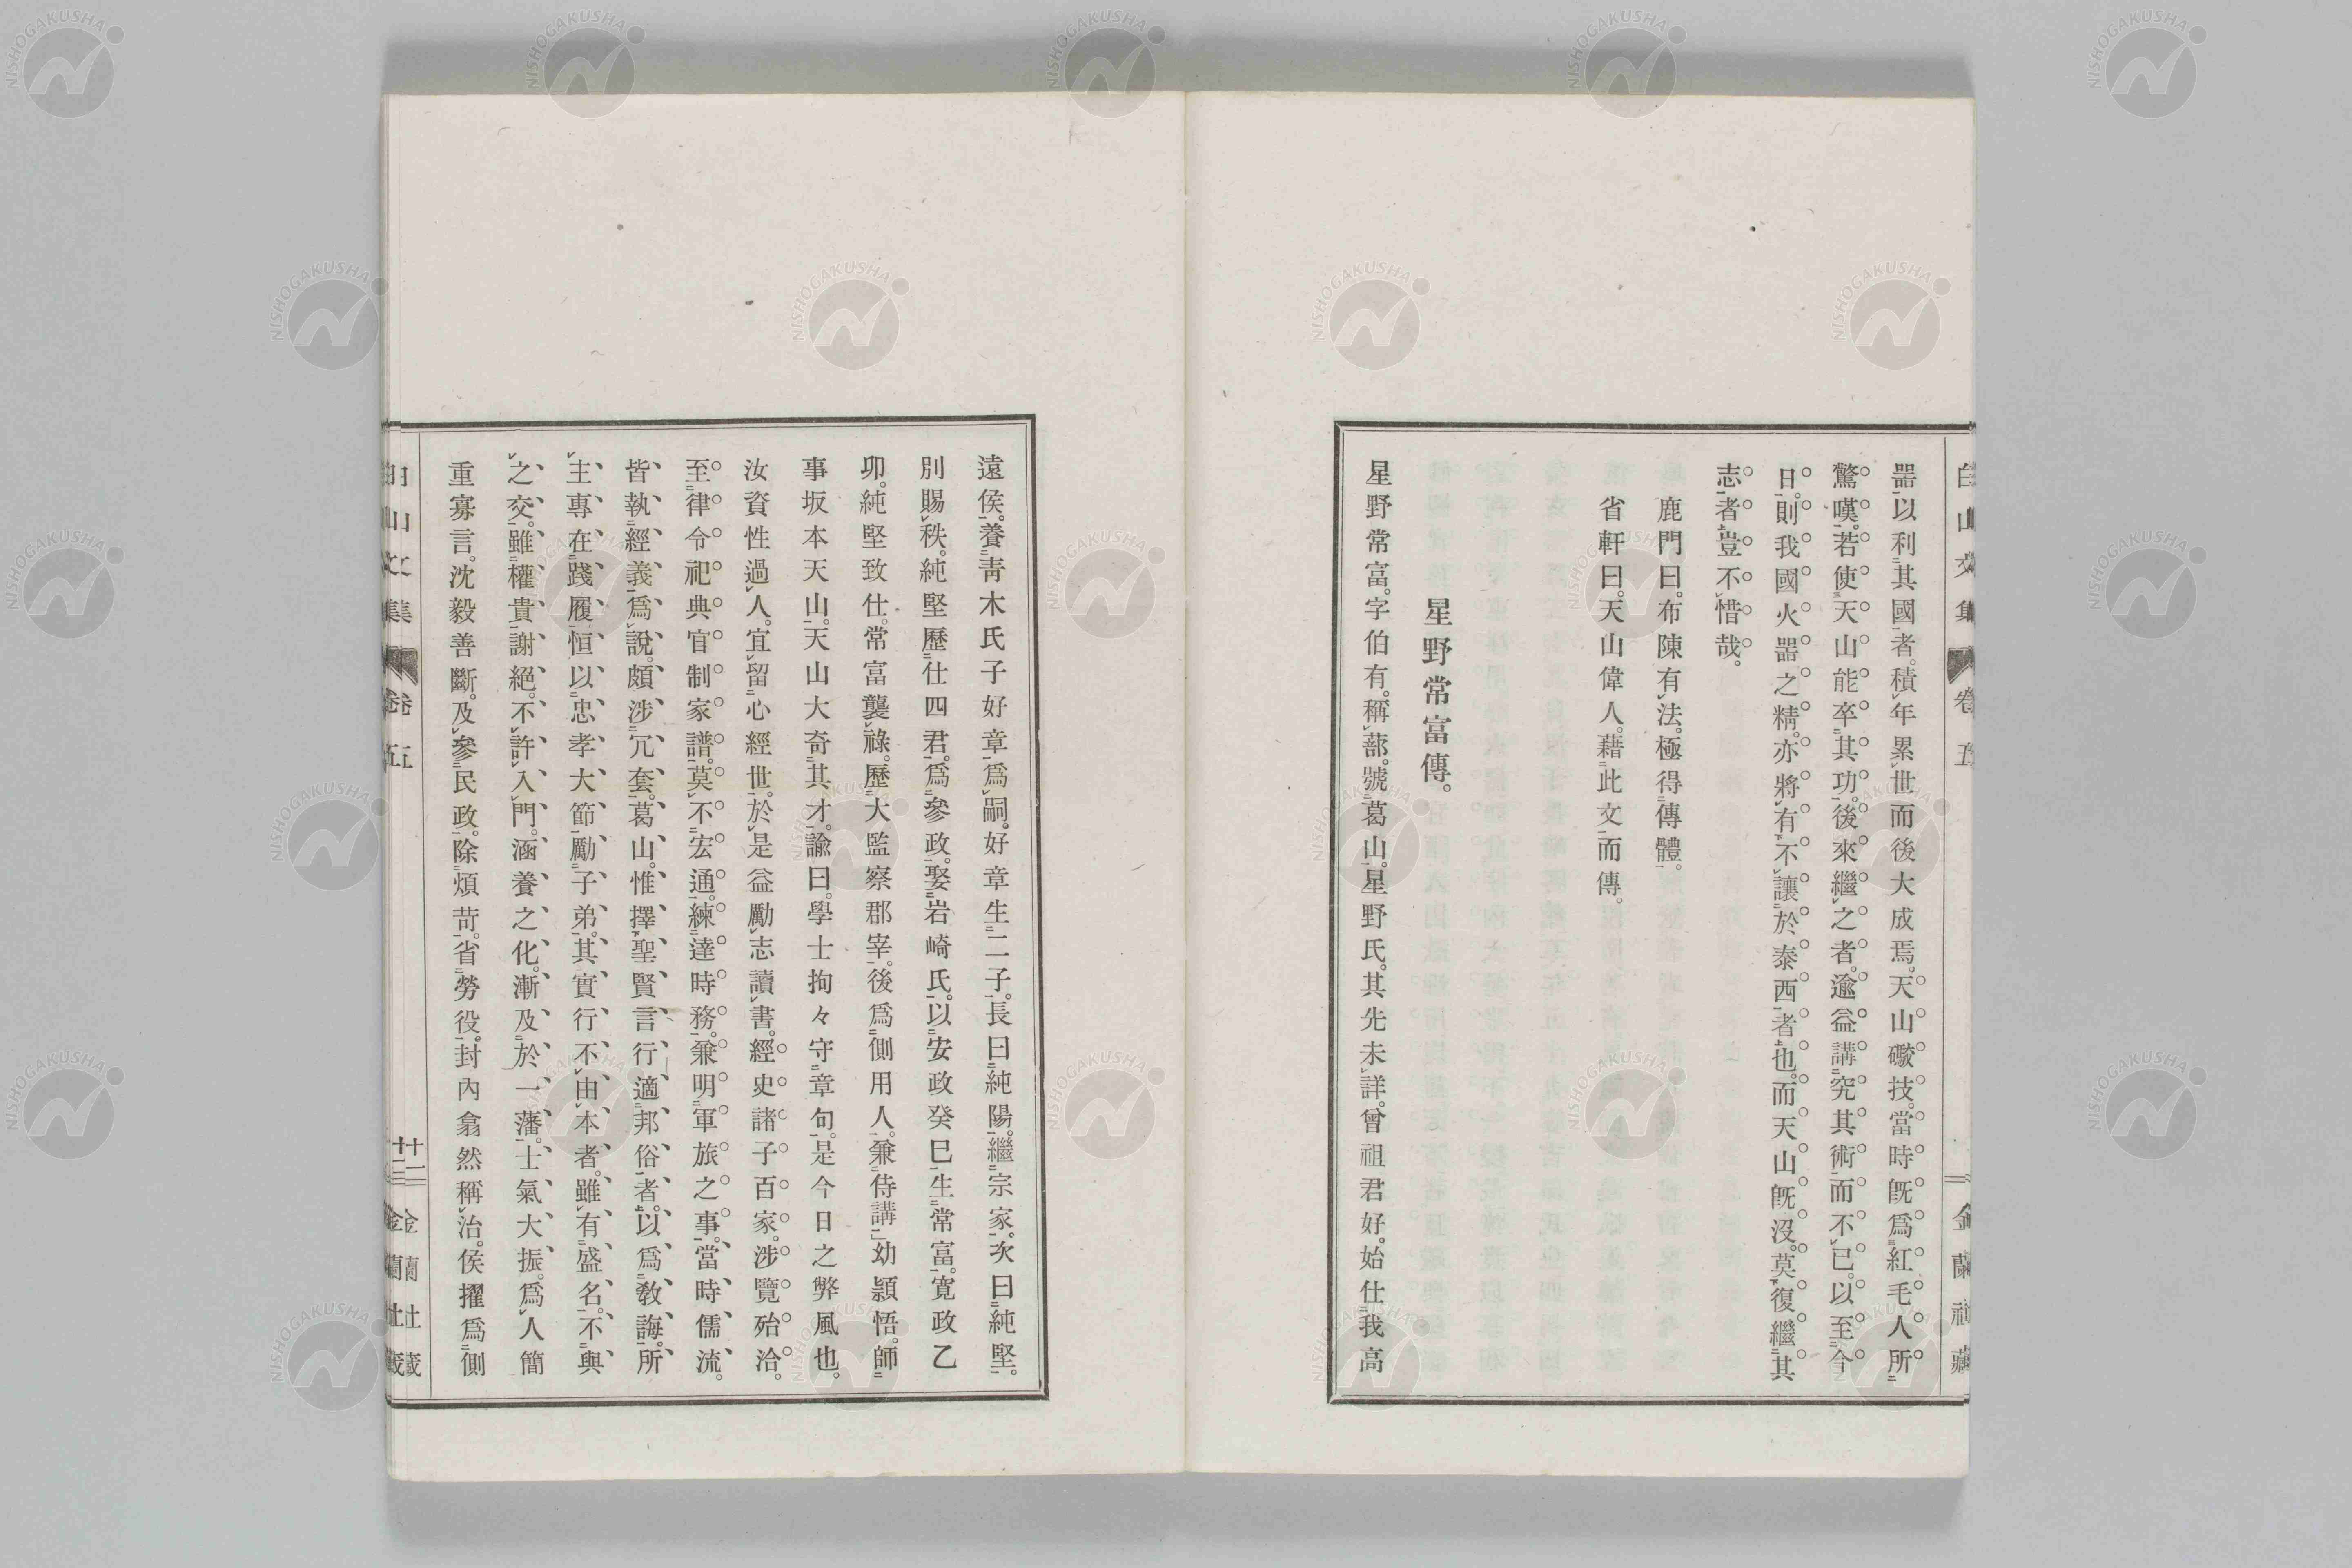 器以利其國者。積年累世而後大成焉。天山礮技。當時既爲紅毛人所
驚嘆。若使天山能卒其功。後來繼之者。逾益講究其術而不已。以至今
日。則我國火器之精。亦將有不讓於泰西者也。而天山既沒。莫復繼其
志者。豈不惜哉。
鹿門曰。布陳有法。極得傳體。
省軒曰。天山偉人。藉此文而傳。
星野常富傳。
星野常富。字伯有。稱蔀。號葛山。星野氏。其先未詳。曾祖君好。始仕我高
遠侯。養青木氏子好章爲嗣。好章生二子。長曰純陽。繼宗家。次曰純堅。
別賜秩。純堅歷仕四君。爲參政。娶岩崎氏。以安政癸巳生常富。寬政乙
卯。純堅致仕。常富襲祿。歷大監察郡宰。後爲側用人。兼侍講」幼穎悟。師
事坂本天山。天山大奇其才。諭曰。學士拘々守章句。是今日之弊風也。
汝資性過人。宜留心經世。於是益勵志讀書。經史諸子百家。涉覽殆洽。
至律令祀典官制家譜。莫不宏通。練達時務。兼明軍旅之事。當時儒流。
皆執經義爲說。頗涉冗套。葛山惟擇聖賢言行適邦俗者。以爲教誨。所
主專在踐履。恒以忠孝大節勵子弟。其實行不由本者。雖有盛名。不與
之交。雖權貴謝絕。不許入門。涵養之化。漸及於一藩。士氣大振。爲人簡
重寡言。沈毅善斷。及參民政。除煩苛。省勞役。封內翕然稱治。侯擢爲側
白山文集 卷五 廿二 金蘭社藏